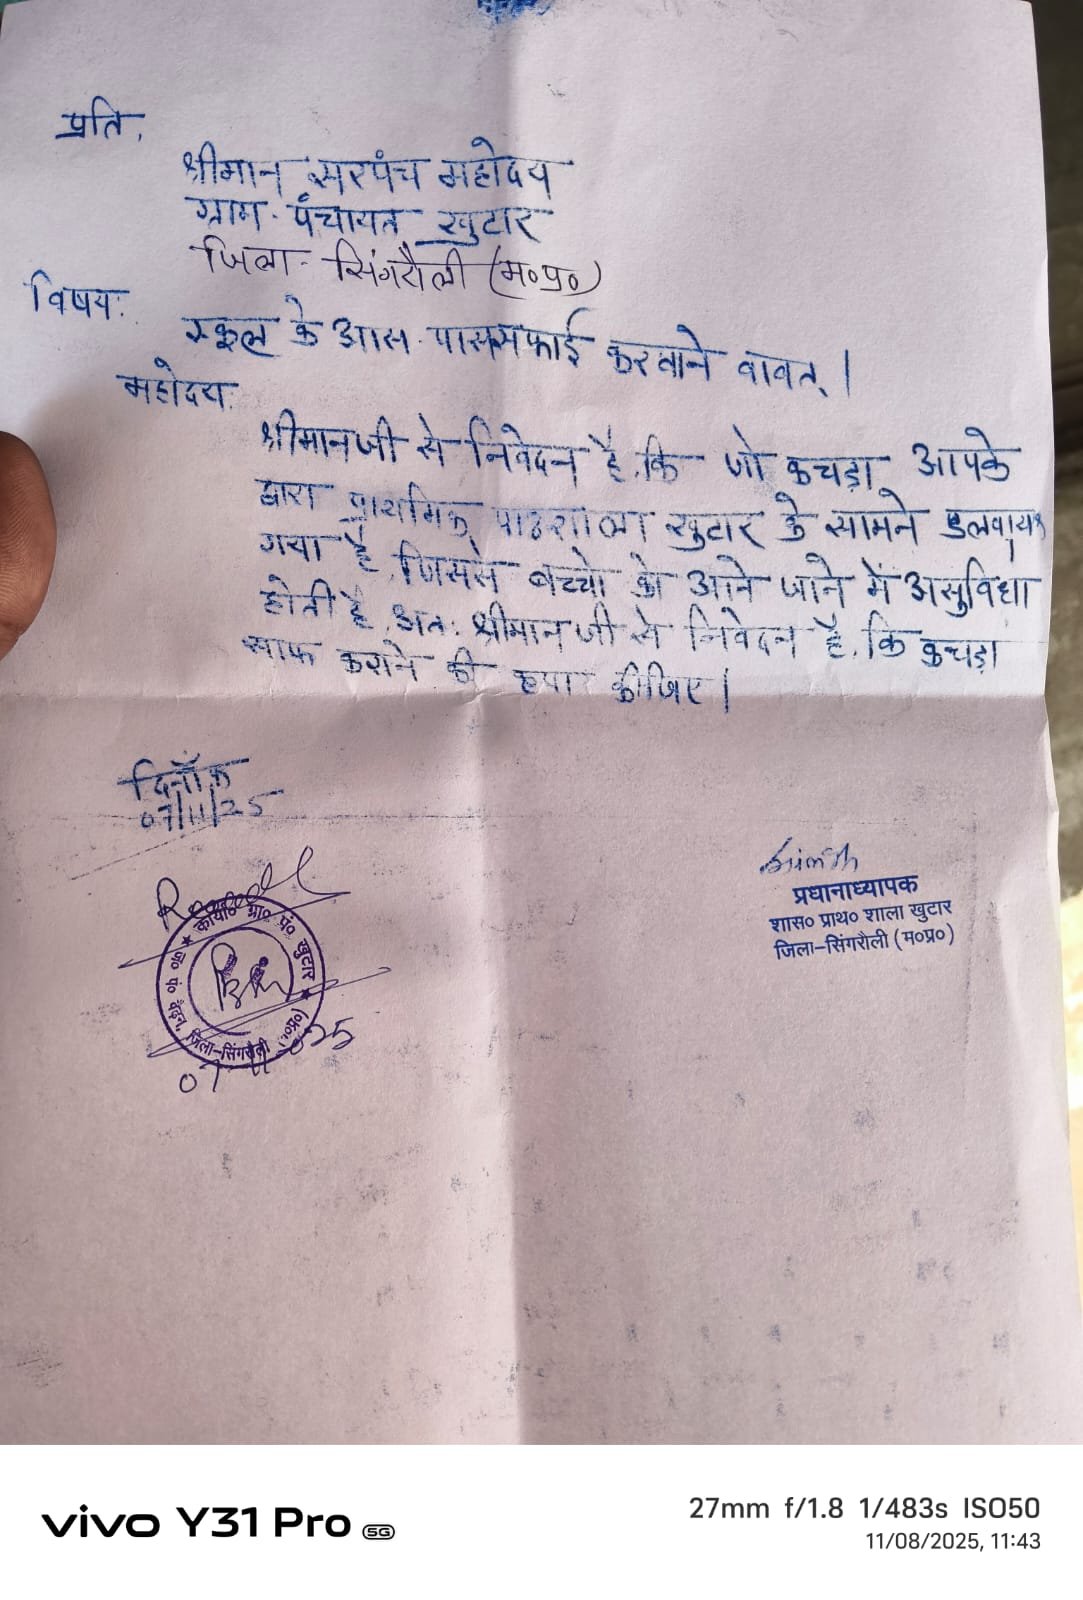 प्रति,
श्रीमान सरपंच महोदय
ग्राम पंचायत खुटार
जिला- सिंगरौली (म०प्र०)
विषय:
स्कूल के आस-पास सफाई करवाने वावत् |
महोदय
श्रीमानजी से निवेदन है. कि जो कचड़ा आपके
द्वारा प्राथमिक पाठशाला खुटार के सामने डलवाया
गया है जिससे बच्चो को आने जाने में असुविधा
होती है, अतः श्रीमान जी से निवेदन है. कि कुचड़ा
साफ कराने की कृपा कीजिए |
दिनाँक
07/11/25
प्रधानाध्यापक
शास० प्राथ० शाला खुटार
जिला-सिंगरौली (म०प्र०)
कार्या० ग्रा० पं० खुटार
ज० पं० बैढ़न, जिला-सिंगरौली (म०प्र०)
vivo Y31 Pro 5G
27mm f/1.8 1/483s ISO50
11/08/2025, 11:43